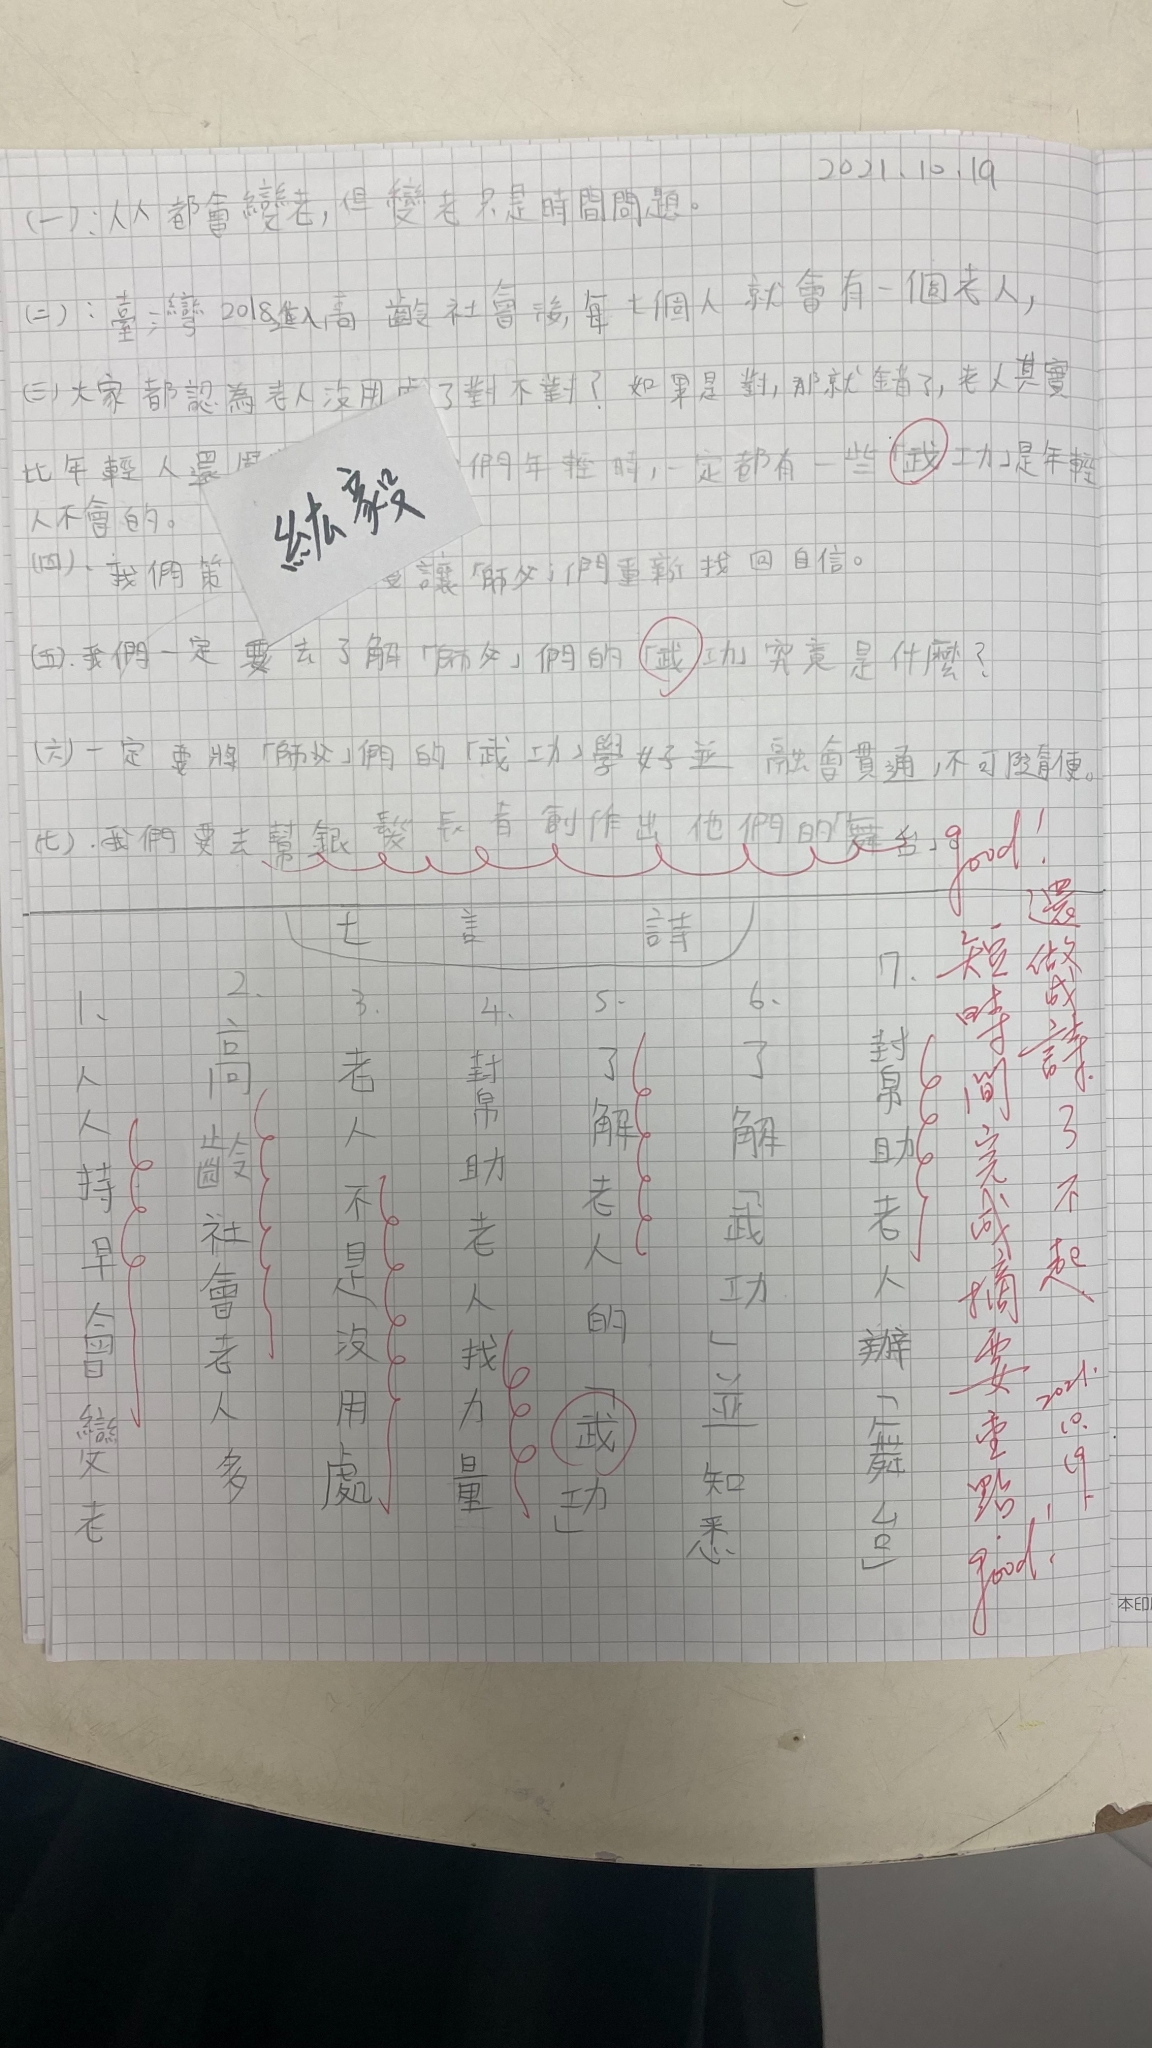 2021.10.19
(一):人人都會變老,但變老只是時間問題。
(二):臺灣2018進入高齡社會後,每七個人就會有一個老人,
(三)大家都認為老人沒用處了對不對?如果是對,那就錯了,老人其實
比年輕人還 們年輕時,一定都有一些「武功」是年輕
人不會的。
(四)、我們策 要讓「師父」們重新找回自信。
(五).我們一定要去了解「師父」們的「武功」究竟是什麼?
(六)一定要將「師父」們的「武功」學好並融會貫通,不可隨便。
(七).我們要去幫銀髮長者創作出他們的「舞台」。
紘毅
good!
七言詩
1、人人持早會變老
2、高齡社會老人多
3.老人不是沒用處
4.幫助老人找力量
5.了解老人的「武功」
6、了解「武功」並知悉
7.幫助老人辦「舞台」
還做成詩.了不起
短時間完成摘要重點!
good!
2021.10.19
本印